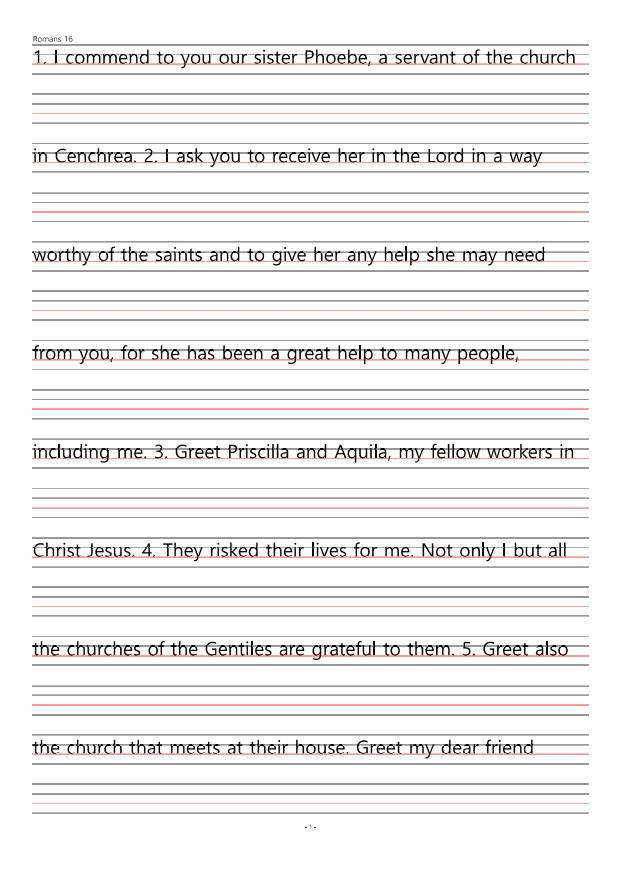 Romans 16
1. I commend to you our sister Phoebe, a servant of the church
in Cenchrea. 2. I ask you to receive her in the Lord in a way
worthy of the saints and to give her any help she may need
from you, for she has been a great help to many people,
including me. 3. Greet Priscilla and Aquila, my fellow workers in
Christ Jesus. 4. They risked their lives for me. Not only I but all
the churches of the Gentiles are grateful to them. 5. Greet also
the church that meets at their house. Greet my dear friend
- 1 -